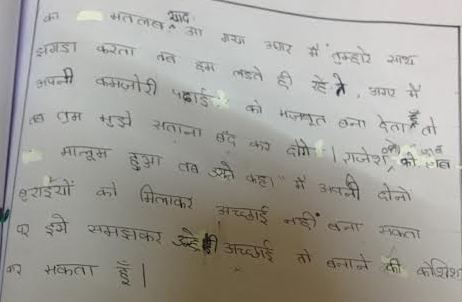 का मतलब याद आ गया अगर मैं तुम्हारे साथ
झगडा करता तब हम लडते ही रहते, अगर मैं
अपनी कमजोरी पढाई को मजबूत बना देता हूँ तो
तब तुम मुझे सताना बंद कर दोगे। राजेश को
मालूम हुआ तब उसने कहा "मैं अपनी दोनो
बुराईयों को मिलाकर अच्छाई नहीं बना सकता
पर इसे समझकर अच्छाई तो बनाने की कोशिश
कर सकता हूँ।